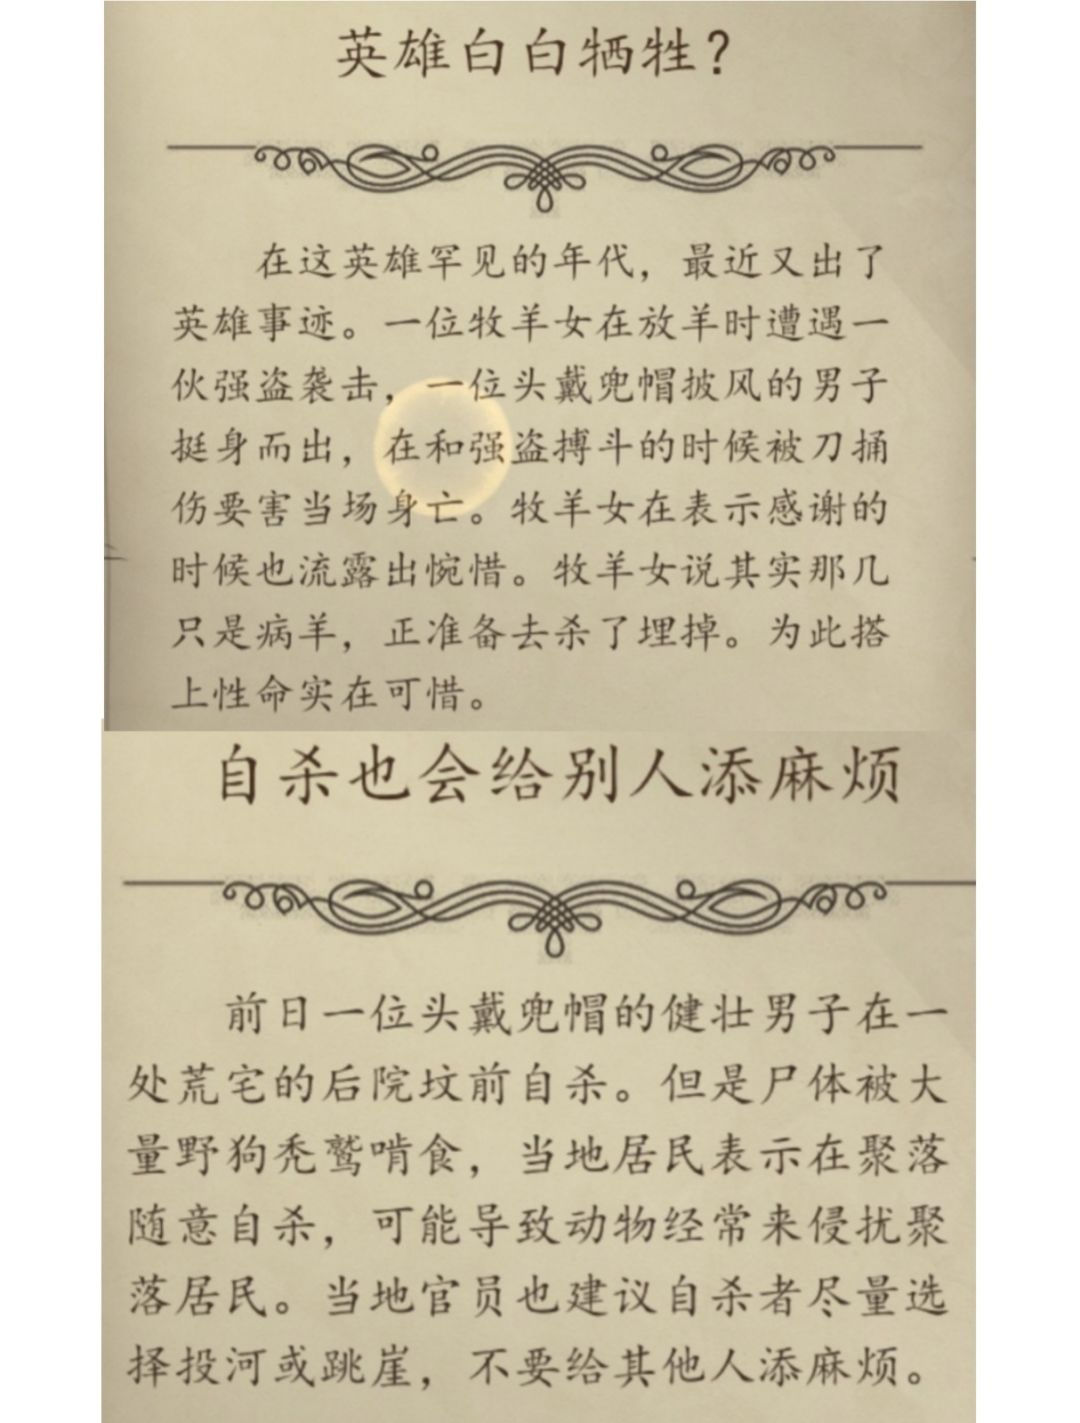 英雄白白牺牲？
在这英雄罕见的年代，最近又出了
英雄事迹。一位牧羊女在放羊时遭遇一
伙强盗袭击，一位头戴兜帽披风的男子
挺身而出，在和强盗搏斗的时候被刀捅
伤要害当场身亡。牧羊女在表示感谢的
时候也流露出惋惜。牧羊女说其实那几
只是病羊，正准备去杀了埋掉。为此搭
上性命实在可惜。
自杀也会给别人添麻烦
前日一位头戴兜帽的健壮男子在一
处荒宅的后院坟前自杀。但是尸体被大
量野狗秃鹫啃食，当地居民表示在聚落
随意自杀，可能导致动物经常来侵扰聚
落居民。当地官员也建议自杀者尽量选
择投河或跳崖，不要给其他人添麻烦。